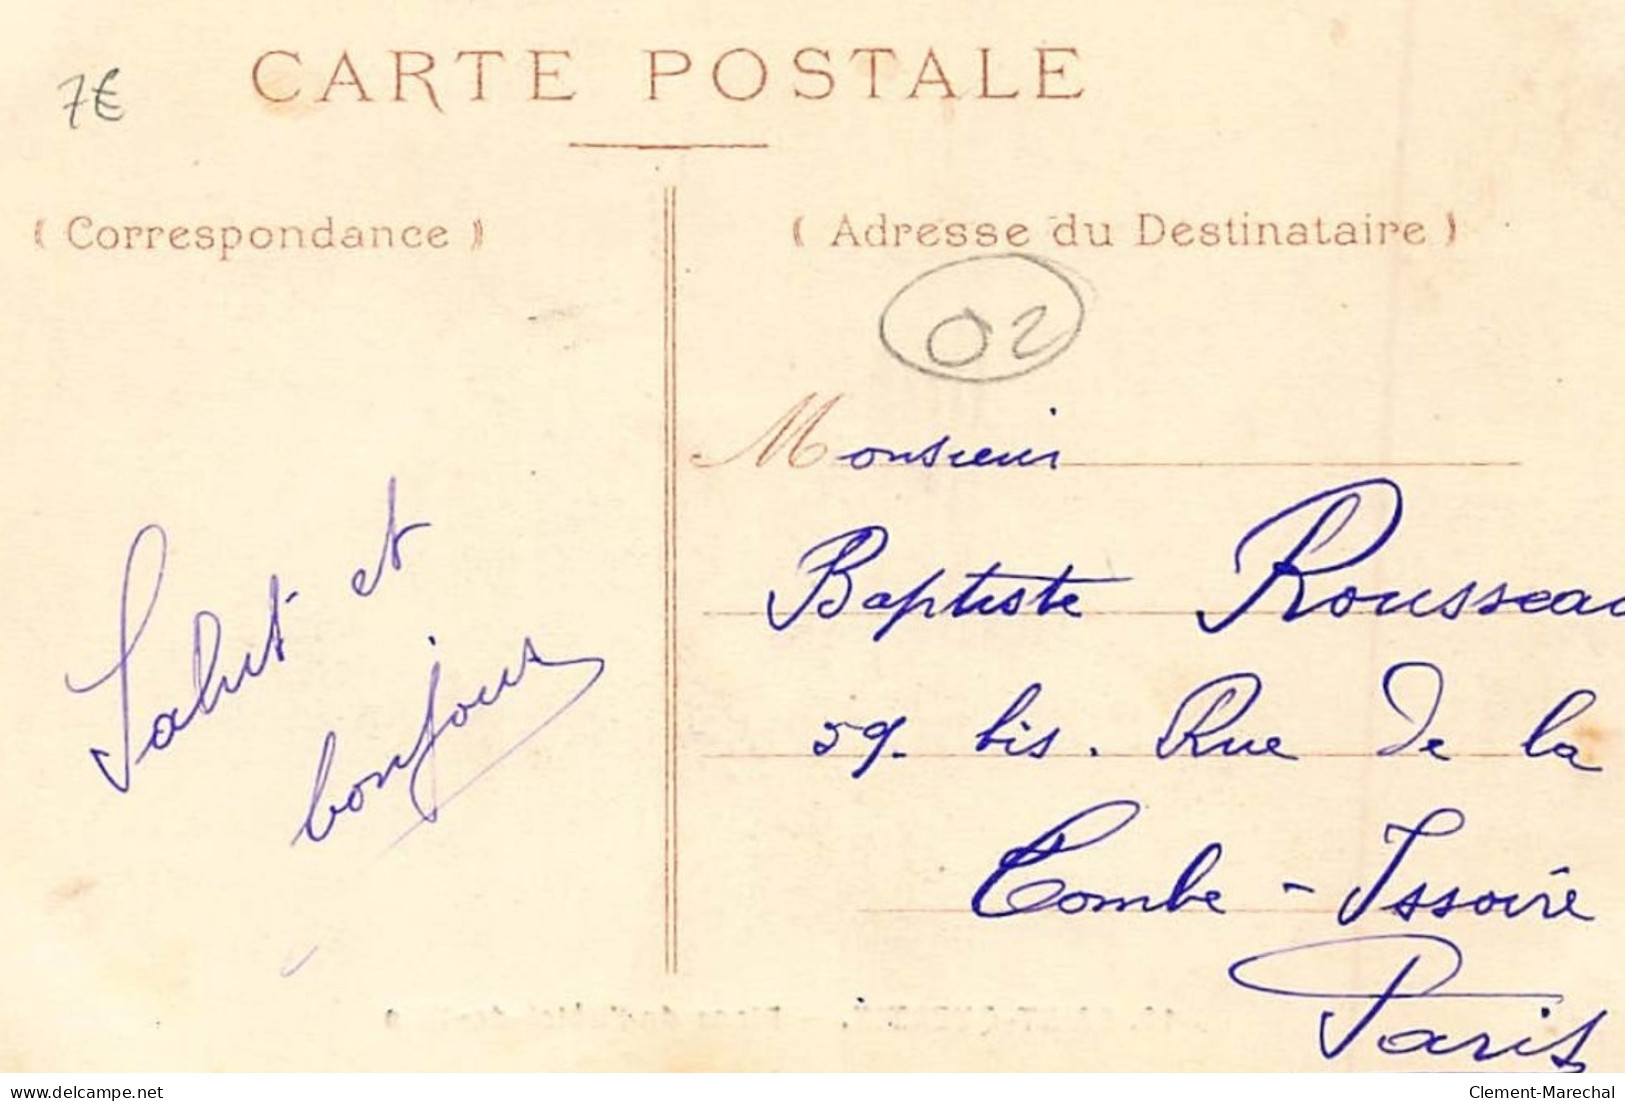 7€
CARTE POSTALE
( Correspondance )
( Adresse du Destinataire )
02
Monsieur
Baptiste Rousseau
59 bis. Rue de la
Combe-Issoire
Paris
Salut et
bonjour
delcampe.net
Clement-Marechal